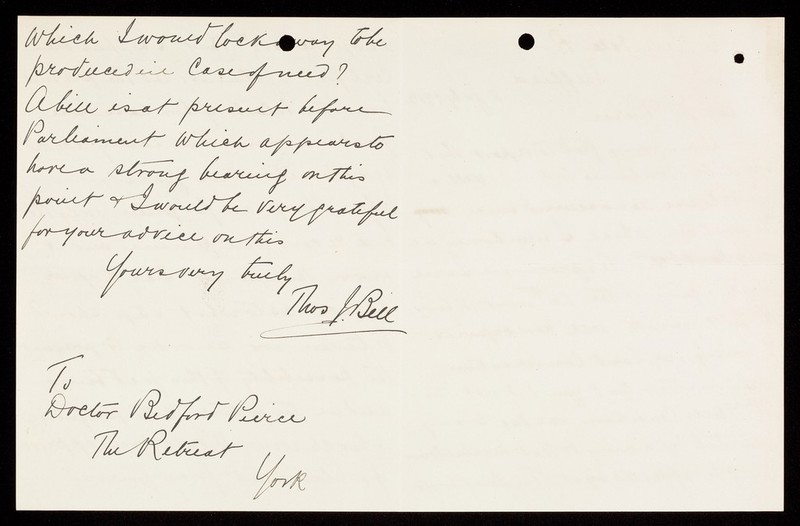 which I would lock away to be
produced in case of need?
A bill is at present before
Parliament which appears to
have a strong bearing on this
point & I would be very grateful
for your advice on this
Yours very truly
Thos J. Bell
To
Doctor Bedford Pierce
The Retreat
York